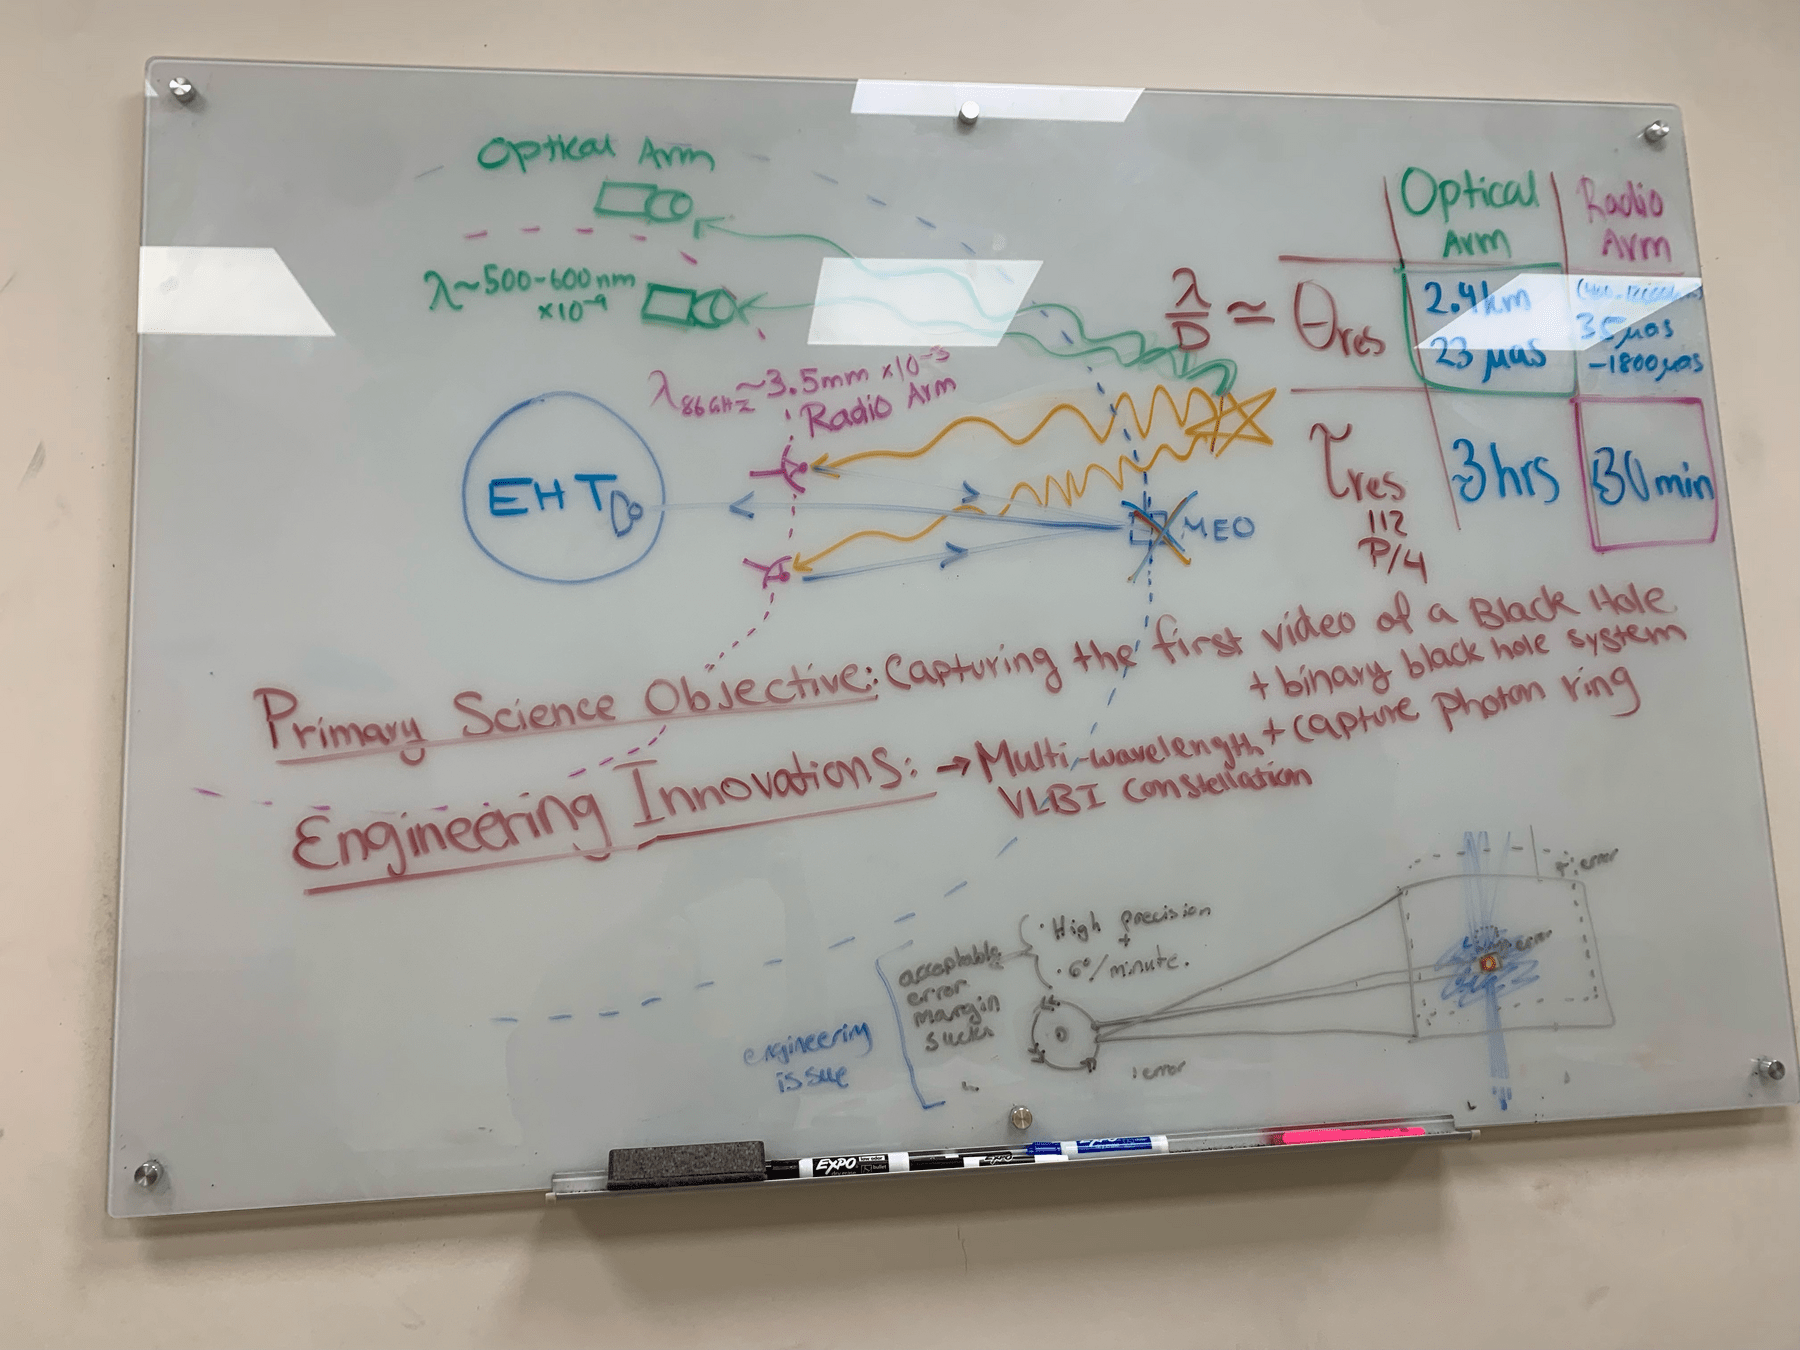 Optical Arm
λ~500-600nm
×10⁻⁹
λ86GHz ~3.5mm ×10⁻³
Radio Arm
EHT
MEO
λ/D ≃ θres
Optical Arm
Radio Arm
2.4km
23 μas
35 μas
-1800μas
τres
P/4
3hrs
30min
Primary Science Objective: Capturing the first video of a Black Hole
+ binary black hole system
+ capture photon ring
Engineering Innovations: → Multi-wavelength
VLBI constellation
engineering
issue
acceptable
error
margin
· High precision
+
· 6°/minute.
error
error
error
EXPO
EXPO
EXPO